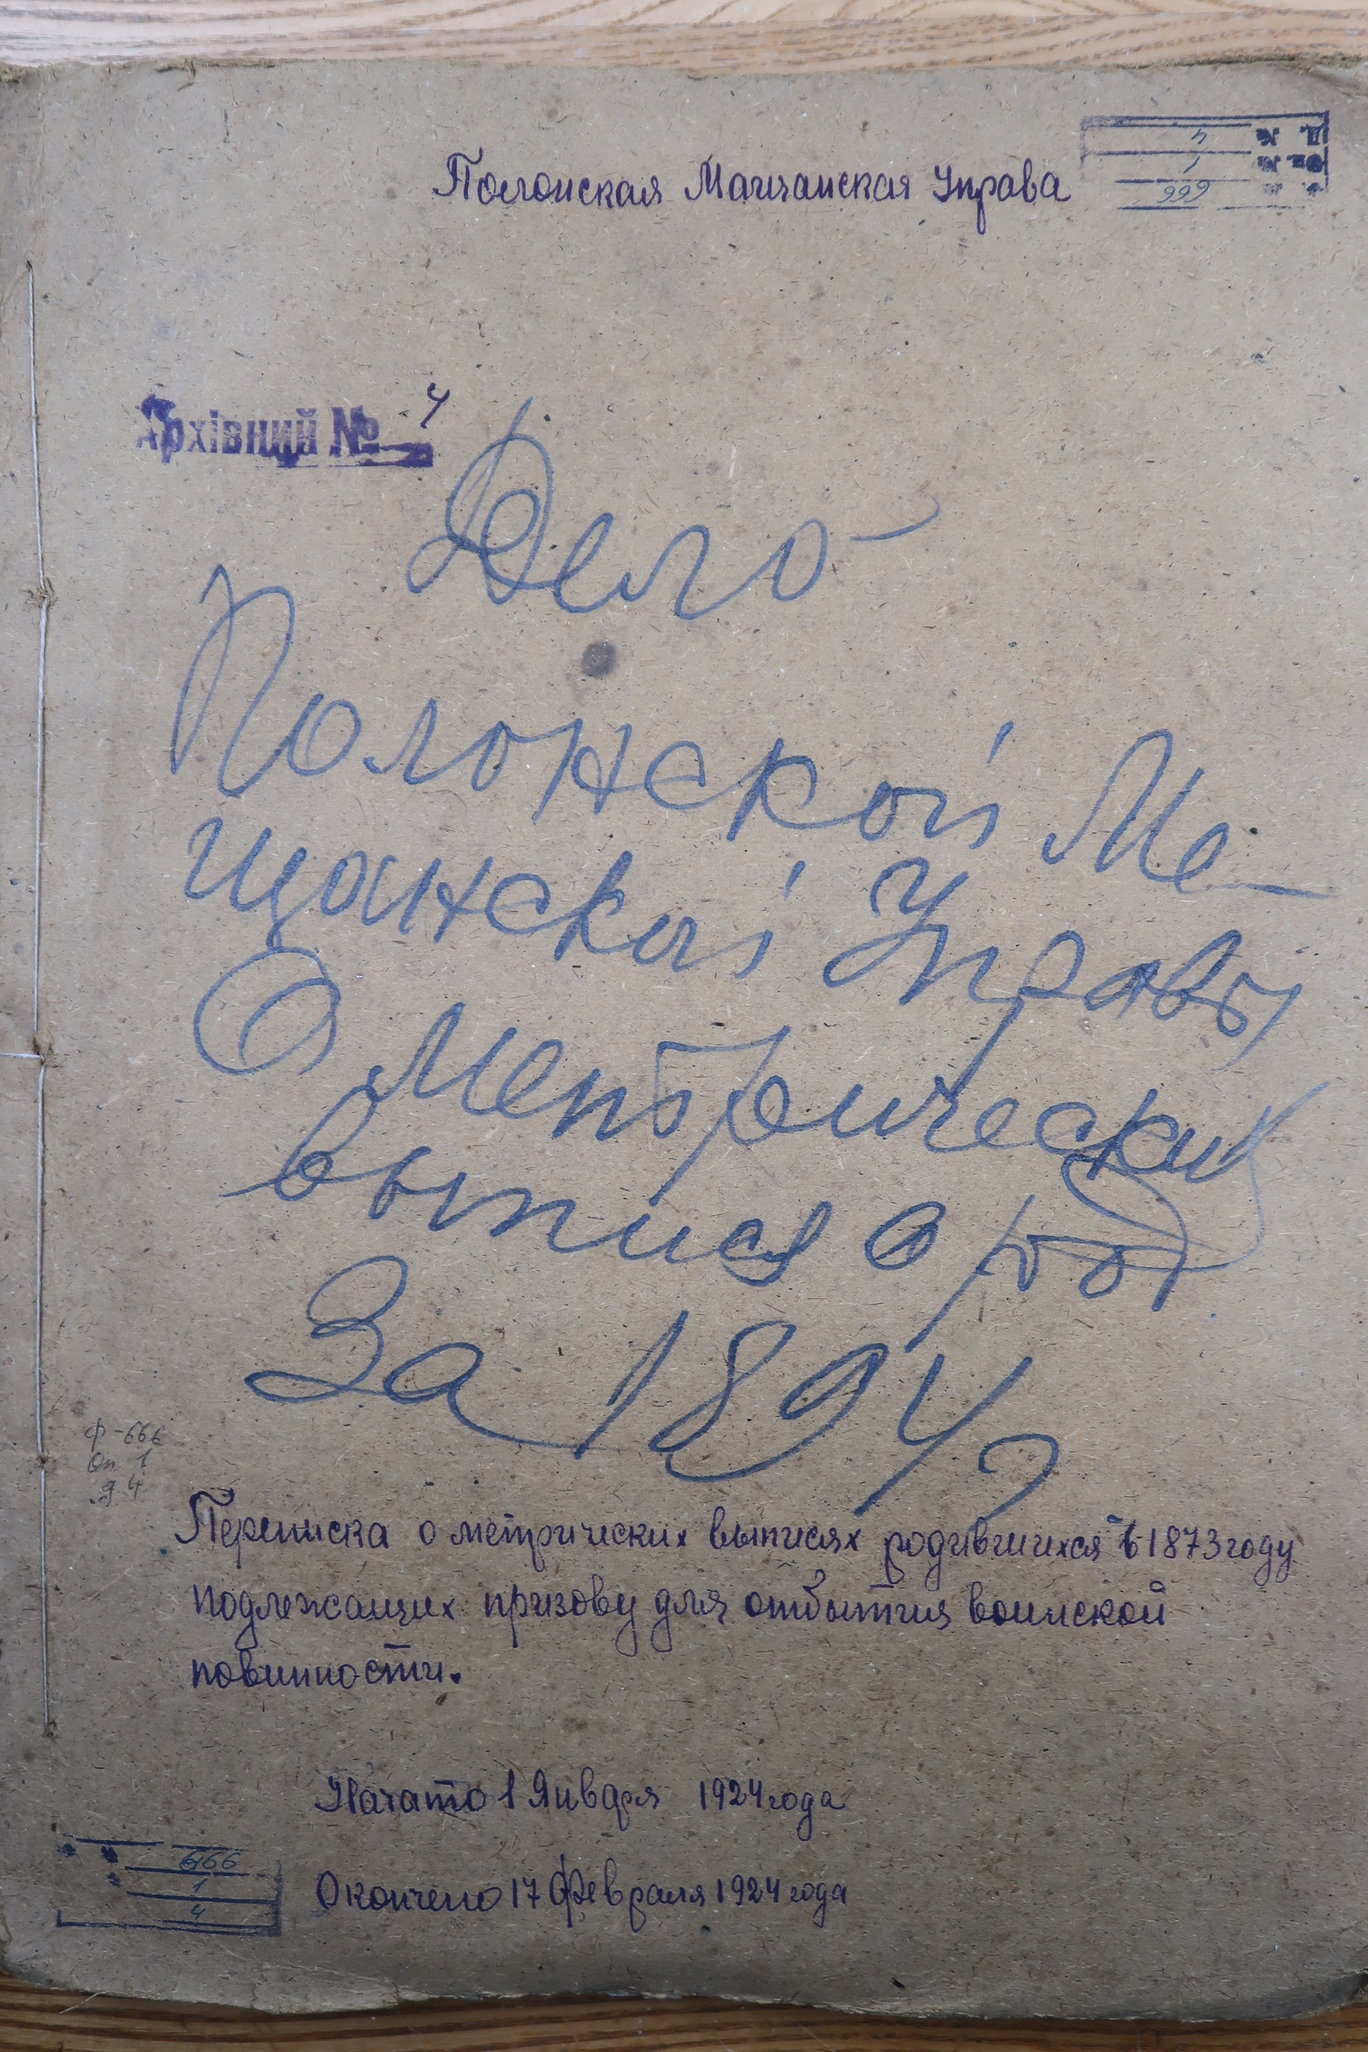 Полонская Мащанская Управа
4
1
666
Архівний № 4
Дело
Полонской Ме-
щанской Управы
О Метрических
выпися о род
За 1894 г
Ф-666
Оп 1
д 4
Переписка о метрических выписях родившихся в 1873 году
подлежащих призову для отбытия воинской
повинности.
Начато 1 Января 1924 года
666
1
4
Окончено 17 Февраля 1924 года